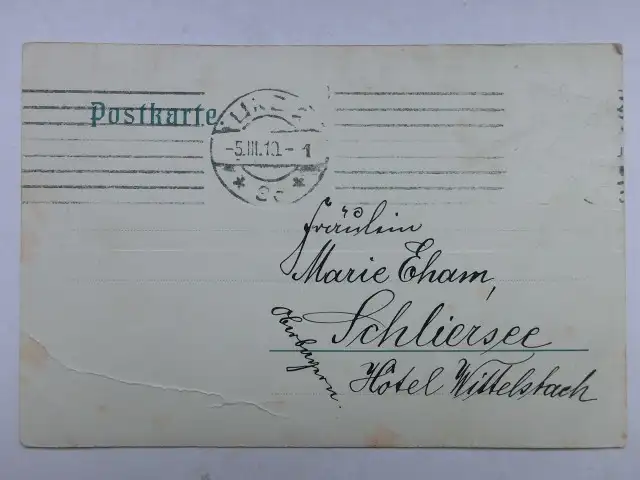 Postkarte
-5.III.10.-1
Fräulein
Marie Eham,
Schliersee
Oberbayern.
Hôtel Wittelsbach